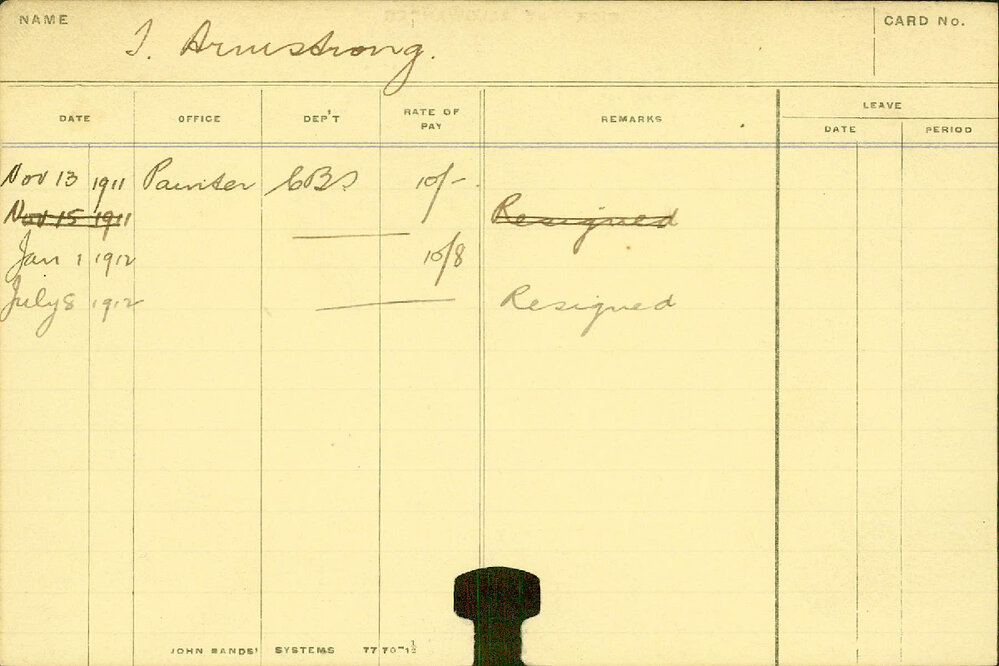 NAME T. Armstrong. CARD No.
DATE OFFICE DEP'T RATE OF PAY REMARKS LEAVE
DATE PERIOD
Nov 13 1911 Painter CBS 10/-
Nov 15 1911 Resigned
Jan 1 1912 10/8
July 8 1912 Resigned
JOHN SANDS' SYSTEMS 7770-1½